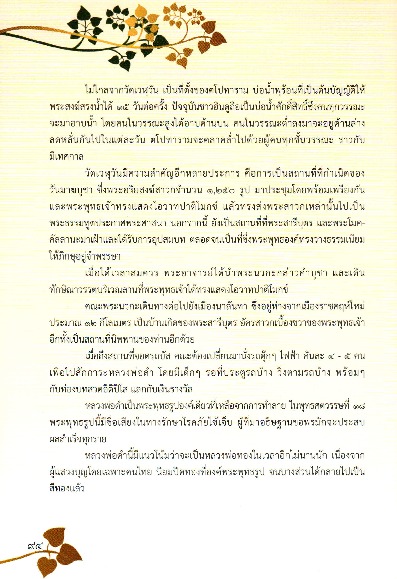 ไม่ไกลจากวัดเวฬุวัน เป็นที่ตั้งของตโปทาราม บ่อน้ำพุร้อนที่เป็นต้นบัญญัติให้
พระสงฆ์สรงน้ำได้ ๑๕ วันต่อครั้ง ปัจจุบันชาวฮินดูถือเป็นบ่อน้ำศักดิ์สิทธิ์ซึ่งคนทุกวรรณะ
จะมาอาบน้ำ โดยคนในวรรณะสูงได้อาบด้านบน คนในวรรณะต่ำลงมาจะอยู่ด้านล่าง
ลดหลั่นกันไปในแต่ละวัน ตโปทารามจะคลาคล่ำไปด้วยผู้คนทุกชั้นวรรณะ ราวกับ
มีเทศกาล
วัดเวฬุวันมีความสำคัญอีกหลายประการ คือการเป็นสถานที่ที่กำเนิดของ
วันมาฆบูชา ซึ่งพระอริยสงฆ์สาวกจำนวน ๑,๒๕๐ รูป มาประชุมโดยพร้อมเพรียงกัน
และพระพุทธเจ้าทรงแสดงโอวาทปาติโมกข์ แล้วทรงส่งพระสาวกเหล่านั้นไปเป็น
พระธรรมทูตประกาศพระศาสนา นอกจากนี้ ยังเป็นสถานที่ที่พระสารีบุตร และพระโมค-
คัลลานะมาเฝ้าและได้รับการอุปสมบท ตลอดจนเป็นที่ซึ่งพระพุทธองค์ทรงวางธรรมเนียม
ให้ภิกษุอยู่จำพรรษา
เมื่อได้เวลาสมควร พระอาจารย์ได้นำพระนวกะกล่าวคำบูชา และเดิน
ทักษิณาวรรตบริเวณลานที่พระพุทธเจ้าได้ทรงแสดงโอวาทปาติโมกข์
คณะพระนวกะเดินทางต่อไปยังเมืองนาลันทา ซึ่งอยู่ห่างจากเมืองราชคฤห์ใหม่
ประมาณ ๑๒ กิโลเมตร เป็นบ้านเกิดของพระสารีบุตร อัครสาวกเบื้องขวาของพระพุทธเจ้า
อีกทั้งเป็นสถานที่นิพพานของท่านอีกด้วย
เมื่อถึงสถานที่จอดรถบัส คณะต้องเปลี่ยนมานั่งรถตุ๊กๆ ไฟฟ้า คันละ ๔ - ๕ คน
เพื่อไปสักการะหลวงพ่อดำ โดยมีเด็กๆ รอที่ประตูรถบ้าง วิ่งตามรถบ้าง พร้อมๆ
กับท่องบทสวดอิติปิโส แลกกับเงินรางวัล
หลวงพ่อดำเป็นพระพุทธรูปองค์เดียวที่เหลือจากการทำลาย ในพุทธศตวรรษที่ ๑๘
พระพุทธรูปนี้มีชื่อเสียงในทางรักษาโรคภัยไข้เจ็บ ผู้ที่มาอธิษฐานขอพรมักจะประสบ
ผลสำเร็จทุกราย
หลวงพ่อดำนี้มีแนวโน้มว่าจะเป็นหลวงพ่อทองในเวลาอีกไม่นานนัก เนื่องจาก
ผู้แสวงบุญโดยเฉพาะคนไทย นิยมปิดทองที่องค์พระพุทธรูป จนบางส่วนได้กลายไปเป็น
สีทองแล้ว
๙๔